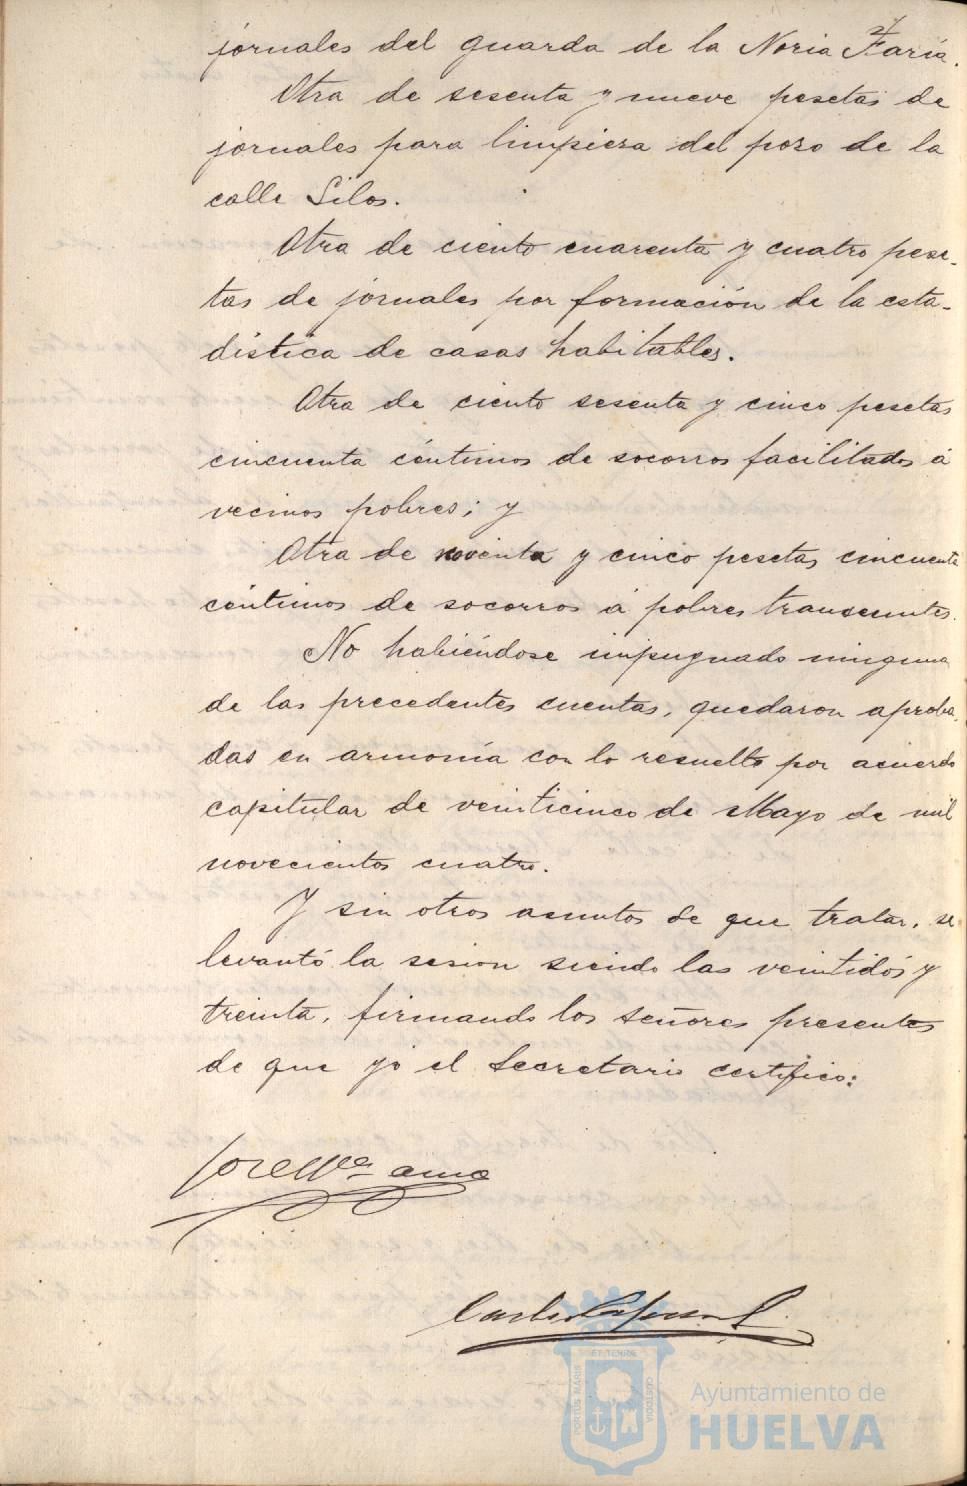 jornales del guarda de la Noria Faria.
Otra de sesenta y nueve pesetas de
jornales para limpiesa del poso de la
calle Silos.
Otra de ciento cuarenta y cuatro pese-
tas de jornales por formación de la esta-
distica de casas habitables.
Otra de ciento sesenta y cinco pesetas
cincuenta céntimos de socorros facilitados á
vecinos pobres; y
Otra de noventa y cinco pesetas cincuenta
céntimos de socorros á pobres transeuntes.
No habiéndose impugnado ninguna
de las precedentes cuentas, quedaron aproba-
das en armonía con lo resuelto por acuerdo
capitular de veinticinco de Mayo de mil
novecientos cuatro.
Y sin otros asuntos de que tratar, se
levantó la sesion siendo las veintidós y
treinta, firmando los señores presentes
de que yo el Secretario certifico:
ET TERRE
PORTUS MARIS
CUSTODIA
Ayuntamiento de
HUELVA